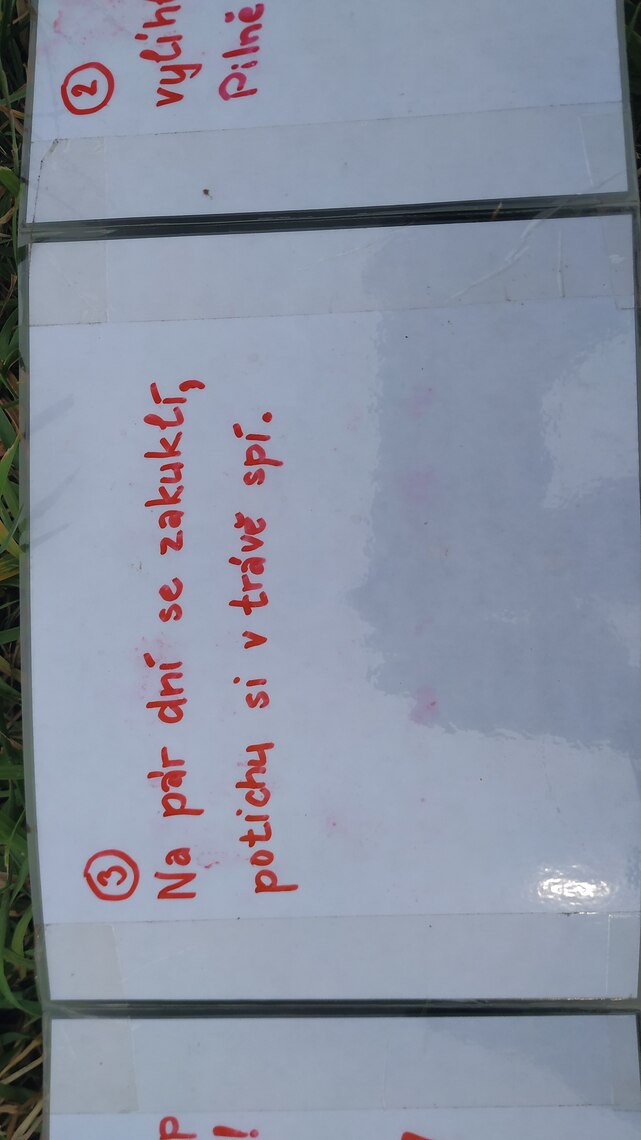 ②
Pilně
③
Na pár dní se zakuklí,
potichu si v trávě spí.